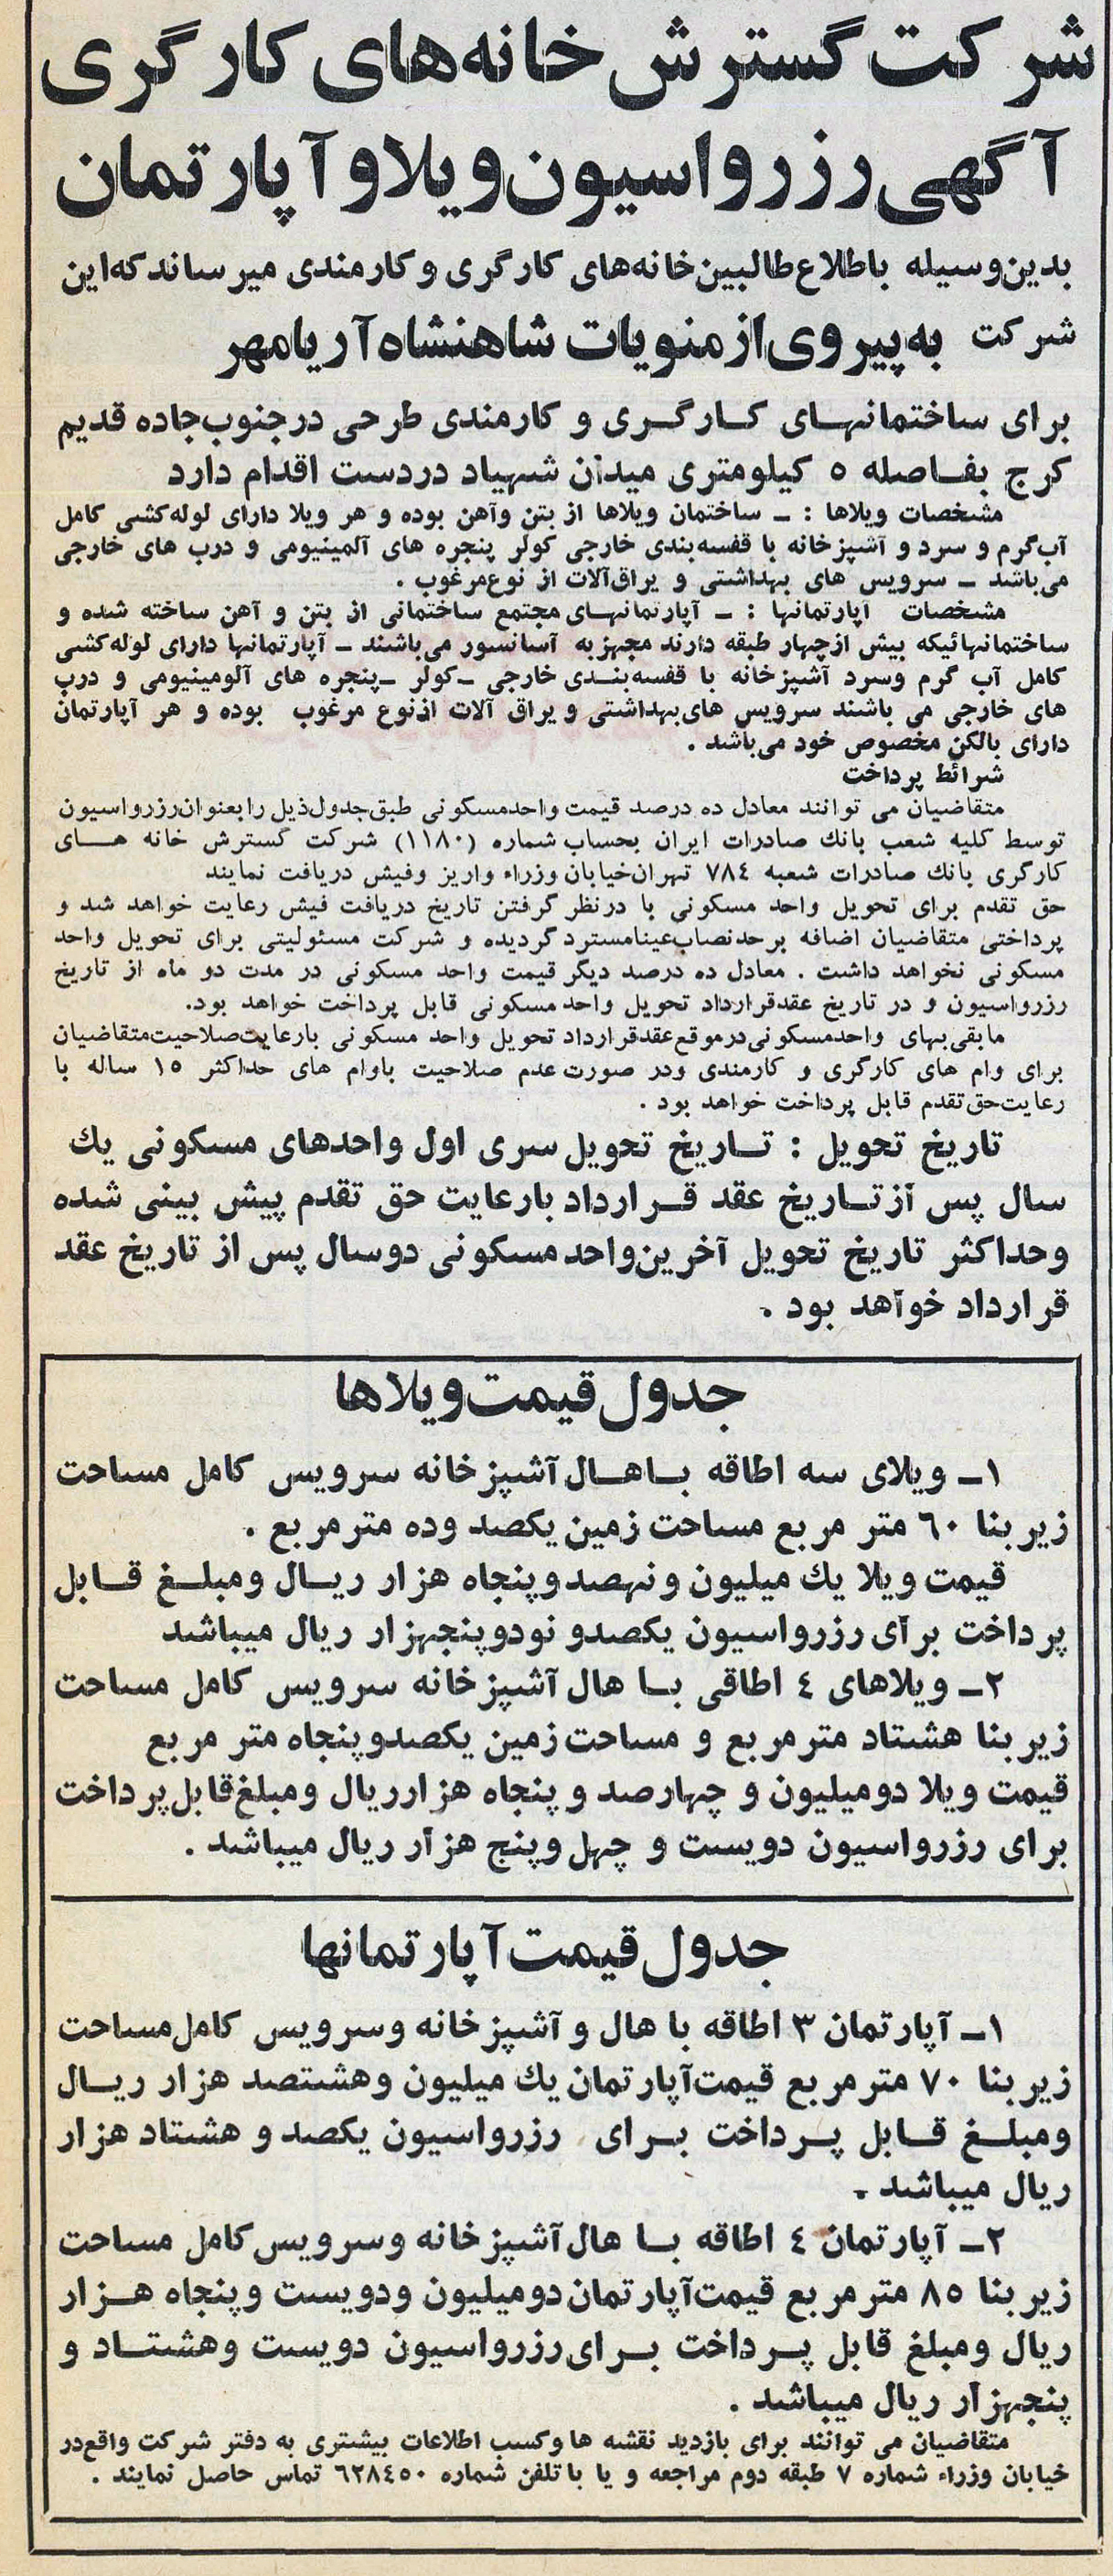 شرکت گسترش خانه‌های کارگری
آگهی رزرواسیون ویلا و آپارتمان
بدین‌وسیله باطلاع طالبین خانه‌های کارگری و کارمندی میرساند که این
شرکت به پیروی از منویات شاهنشاه آریامهر
برای ساختمانهای کارگری و کارمندی طرحی در جنوب جاده قدیم
کرج بفاصله ٥ کیلومتری میدان شهیاد در دست اقدام دارد
مشخصات ویلاها : ــ ساختمان ویلاها از بتن و آهن بوده و هر ویلا دارای لوله‌کشی کامل
آب گرم و سرد و آشپزخانه با قفسه‌بندی خارجی کولر پنجره های آلمینیومی و درب های خارجی
می‌باشد ــ سرویس های بهداشتی و یراق‌آلات از نوع مرغوب .
مشخصات آپارتمانها : ــ آپارتمانهای مجتمع ساختمانی از بتن و آهن ساخته شده و
ساختمانهائیکه بیش از چهار طبقه دارند مجهز به آسانسور می‌باشند ــ آپارتمانها دارای لوله‌کشی
کامل آب گرم و سرد آشپزخانه با قفسه‌بندی خارجی ــ کولر ــ پنجره های آلومینیومی و درب
های خارجی می باشند سرویس های بهداشتی و یراق آلات از نوع مرغوب بوده و هر آپارتمان
دارای بالکن مخصوص خود می‌باشد .
شرائط پرداخت
متقاضیان می توانند معادل ده درصد قیمت واحد مسکونی طبق جدول ذیل را بعنوان رزرواسیون
توسط کلیه شعب بانك صادرات ایران بحساب شماره (۱۱۸۰) شرکت گسترش خانه هــای
کارگری بانك صادرات شعبه ٧٨٤ تهران خیابان وزراء واریز و فیش دریافت نمایند
حق تقدم برای تحویل واحد مسکونی با در نظر گرفتن تاریخ دریافت فیش رعایت خواهد شد و
پرداختی متقاضیان اضافه بر حد نصاب عینا مسترد گردیده و شرکت مسئولیتی برای تحویل واحد
مسکونی نخواهد داشت . معادل ده درصد دیگر قیمت واحد مسکونی در مدت دو ماه از تاریخ
رزرواسیون و در تاریخ عقد قرارداد تحویل واحد مسکونی قابل پرداخت خواهد بود.
مابقی بهای واحد مسکونی در موقع عقد قرارداد تحویل واحد مسکونی بارعایت صلاحیت متقاضیان
برای وام های کارگری و کارمندی ودر صورت عدم صلاحیت باوام های حداکثر ۱٥ ساله با
رعایت حق تقدم قابل پرداخت خواهد بود .
تاریخ تحویل : تــاریخ تحویل سری اول واحدهای مسکونی یك
سال پس از تــاریخ عقد قــرارداد بارعایت حق تقدم پیش بینی شده
وحداکثر تاریخ تحویل آخرین واحد مسکونی دو سال پس از تاریخ عقد
قرارداد خواهد بود .
جدول قیمت ویلاها
۱ــ ویلای سه اطاقه بــاهــال آشپزخانه سرویس کامل مساحت
زیربنا ٦٠ متر مربع مساحت زمین یکصد وده مترمربع .
قیمت ویلا یك میلیون و نهصد و پنجاه هزار ریــال و مبلــغ قــابل
پرداخت برای رزرواسیون یکصد و نود و پنجهزار ریال میباشد
۲ــ ویلاهای ٤ اطاقی بــا هال آشپزخانه سرویس کامل مساحت
زیربنا هشتاد مترمربع و مساحت زمین یکصد و پنجاه متر مربع
قیمت ویلا دو میلیون و چهارصد و پنجاه هزار ریال و مبلغ قابل پرداخت
برای رزرواسیون دویست و چهل و پنج هزار ریال میباشد .
جدول قیمت آپارتمانها
۱ــ آپارتمان ۳ اطاقه با هال و آشپزخانه و سرویس کامل مساحت
زیربنا ۷۰ مترمربع قیمت آپارتمان یك میلیون و هشتصد هزار ریــال
و مبلــغ قــابل پــرداخت بــرای رزرواسیون یکصد و هشتاد هزار
ریال میباشد .
۲ــ آپارتمان ٤ اطاقه بــا هال آشپزخانه و سرویس کامل مساحت
زیربنا ۸٥ مترمربع قیمت آپارتمان دو میلیون و دویست و پنجاه هــزار
ریال و مبلغ قابل پــرداخت بــرای رزرواسیون دویست و هشتــاد و
پنجهزار ریال میباشد .
متقاضیان می توانند برای بازدید نقشه ها و کسب اطلاعات بیشتری به دفتر شرکت واقع در
خیابان وزراء شماره ۷ طبقه دوم مراجعه و یا با تلفن شماره ٦٢٨٤٥٠ تماس حاصل نمایند .